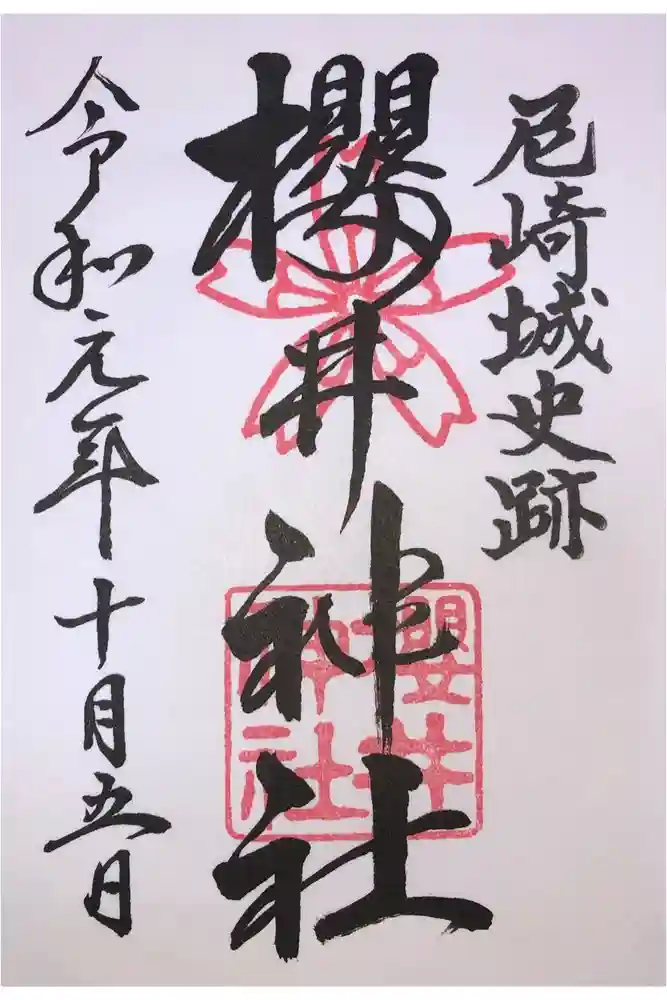 尼崎城史跡
櫻井神社
櫻井
神社
令和元年十月五日